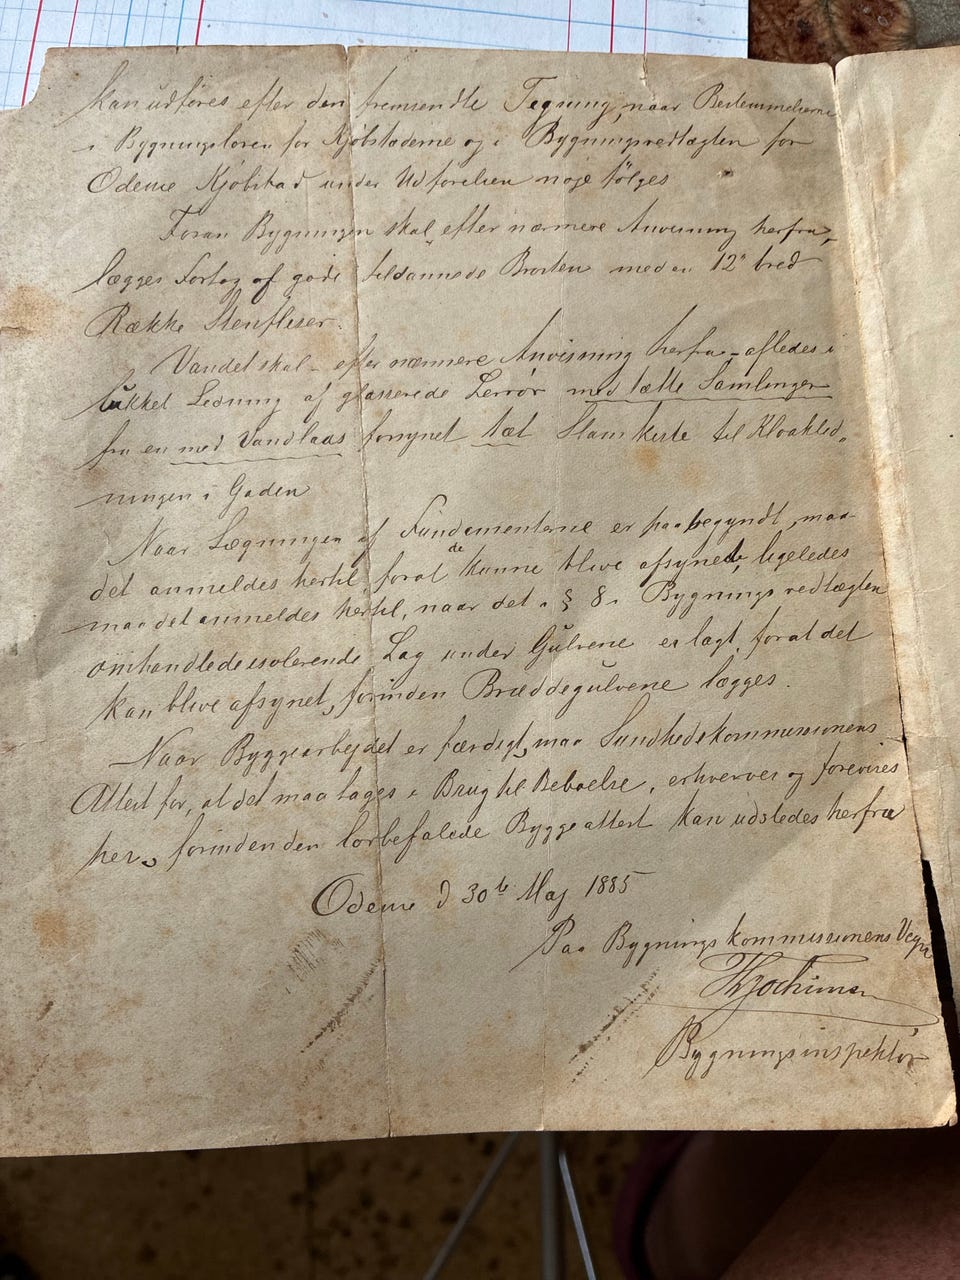 kan udføres efter den fremsendte Tegning, naar Bestemmelserne
i Bygningsloven for Kjøbstæderne og i Bygningsvedtægten for
Odense Kjøbstad under Udførelsen nøje følges
Foran Bygningen skal efter nærmere Anvisning herfra,
lægges Fortog af gode tildannede Brosten med en 12" bred
Række Stenfliser.
Vandet skal - efter nærmere Anvisning herfra - afledes i
lukket Ledning af glasserede Lerrør med tætte Samlinger
fra en med Vandlaas forsynet tæt Slamkiste til Kloakled„
ningen i Gaden
Naar Lægningen af Fundamenterne er paabegyndt, maa
det anmeldes hertil, forat de kunne blive afsynede, ligeledes
maa det anmeldes hertil, naar det i § 8 i Bygningsvedtægten
omhandlede isolerende Lag under Gulvene er lagt, forat det
kan blive afsynet, forinden Bræddegulvene lægges.
Naar Byggearbejdet er færdigt, maa Sundhedskommissionens
Attest for, at det maa tages i Brug til Beboelse, erhverves og forevises
her, forinden den lovbefalede Byggeattest kan udstedes herfra
Odense d 30te Maj 1885
Paa Bygningskommissionens Vegne
Bygningsinspektør